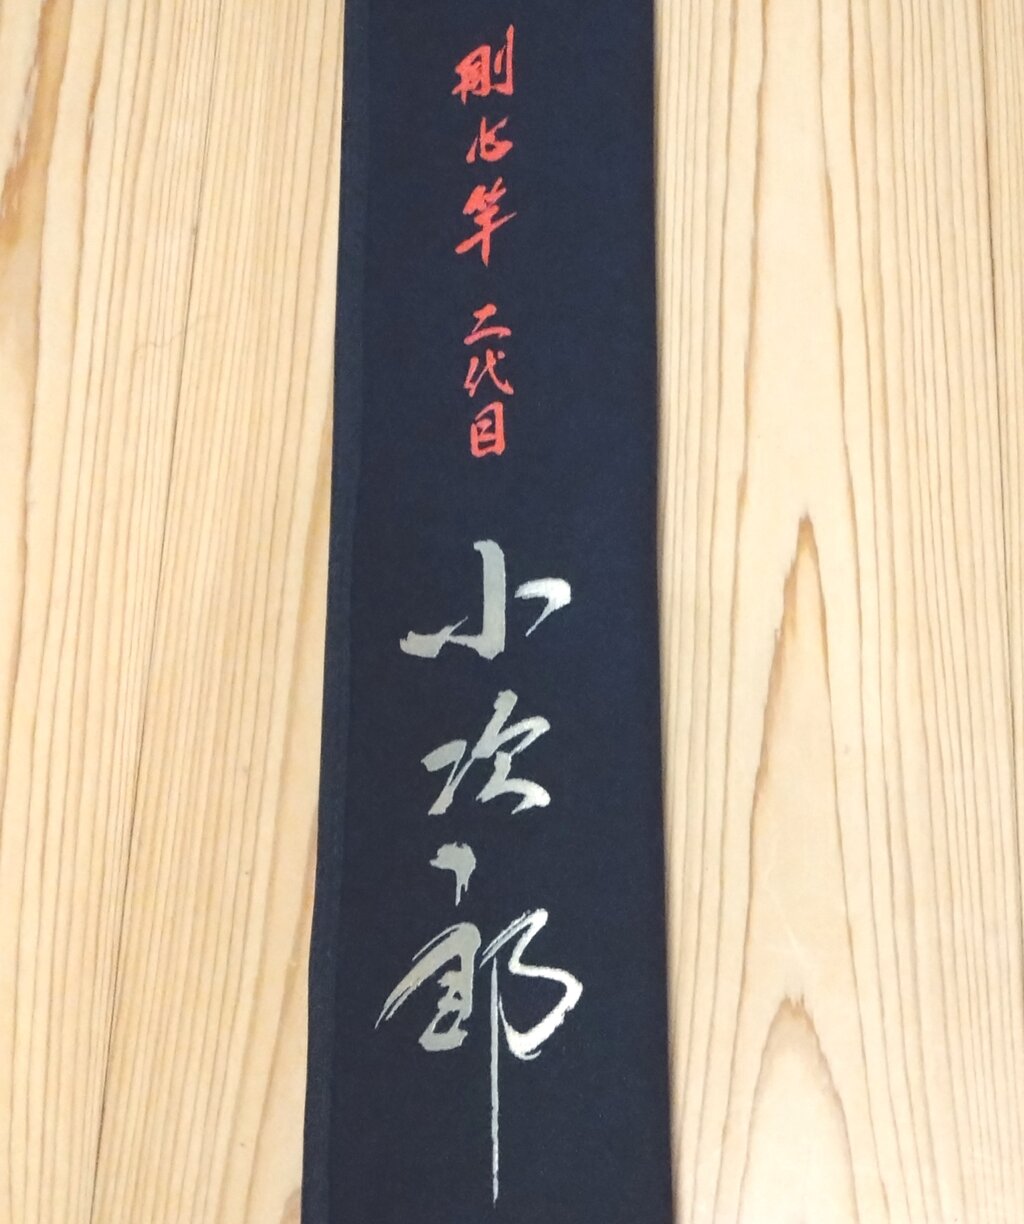 剛心竿 二代目
小次郎